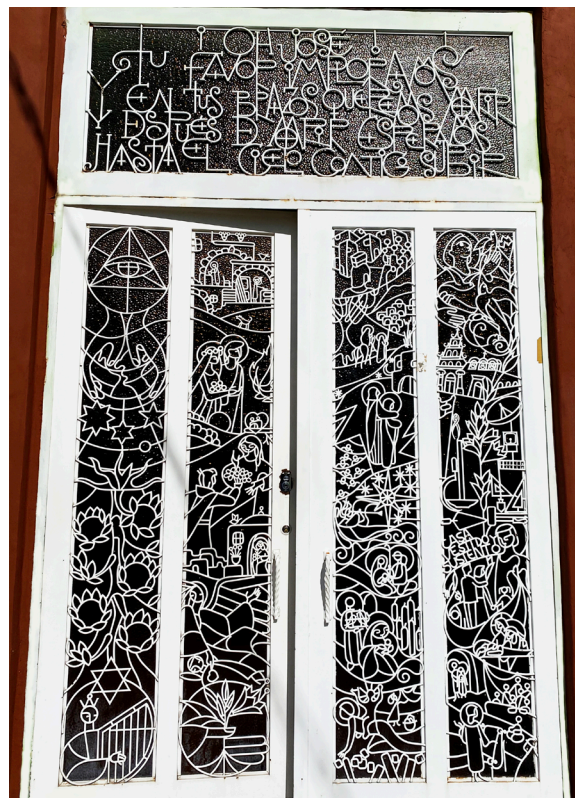 ¡OH JOSÉ!
TU FAVOR YMPLORAMOS
Y EN TUS BRAZOS QUEREMOS VIVIR
Y DESPUES D VIVIR ESPERAMOS
HASTA EL CIELO CONTIGO SUBIR